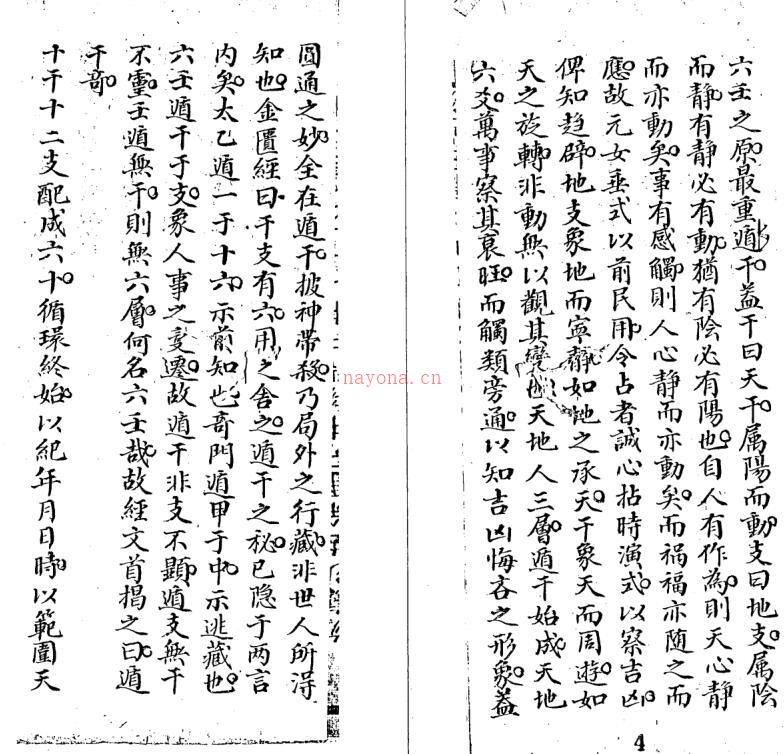 六壬之原最重遁干蓋干曰天干属陽而動支曰地支属陰
而静有静必有動猶有陰必有陽也自人有作為則天心静
而亦動矣事有感觸則人心静而亦動矣而禍福亦随之而
應故元女垂式以前民用令占者誠心拈時演式以察吉凶
俾知趋辟地支象地而寧静如地之承天干象天而周遊如
天之旋轉非動無以觀其變也天地人三層遁干始成天地
六爻萬事察其衰旺而觸類旁通以知吉凶悔吝之形象盖
圓通之妙全在遁干披神帶殺乃局外之行藏非世人所淂
知也金匱經曰干支有六用之舍之遁干之秘已隐于两言
内矣太乙遁一于十六示前知也奇門遁甲于中示逃藏也
六壬遁干于支象人事之变遷故遁干非支不顯遁支無干
不靈壬遁無干則無六層何名六壬哉故經文首揭之曰遁
干奇
十干十二支配成六十循環終始以紀年月日時以範圍天
4
nayona.cn